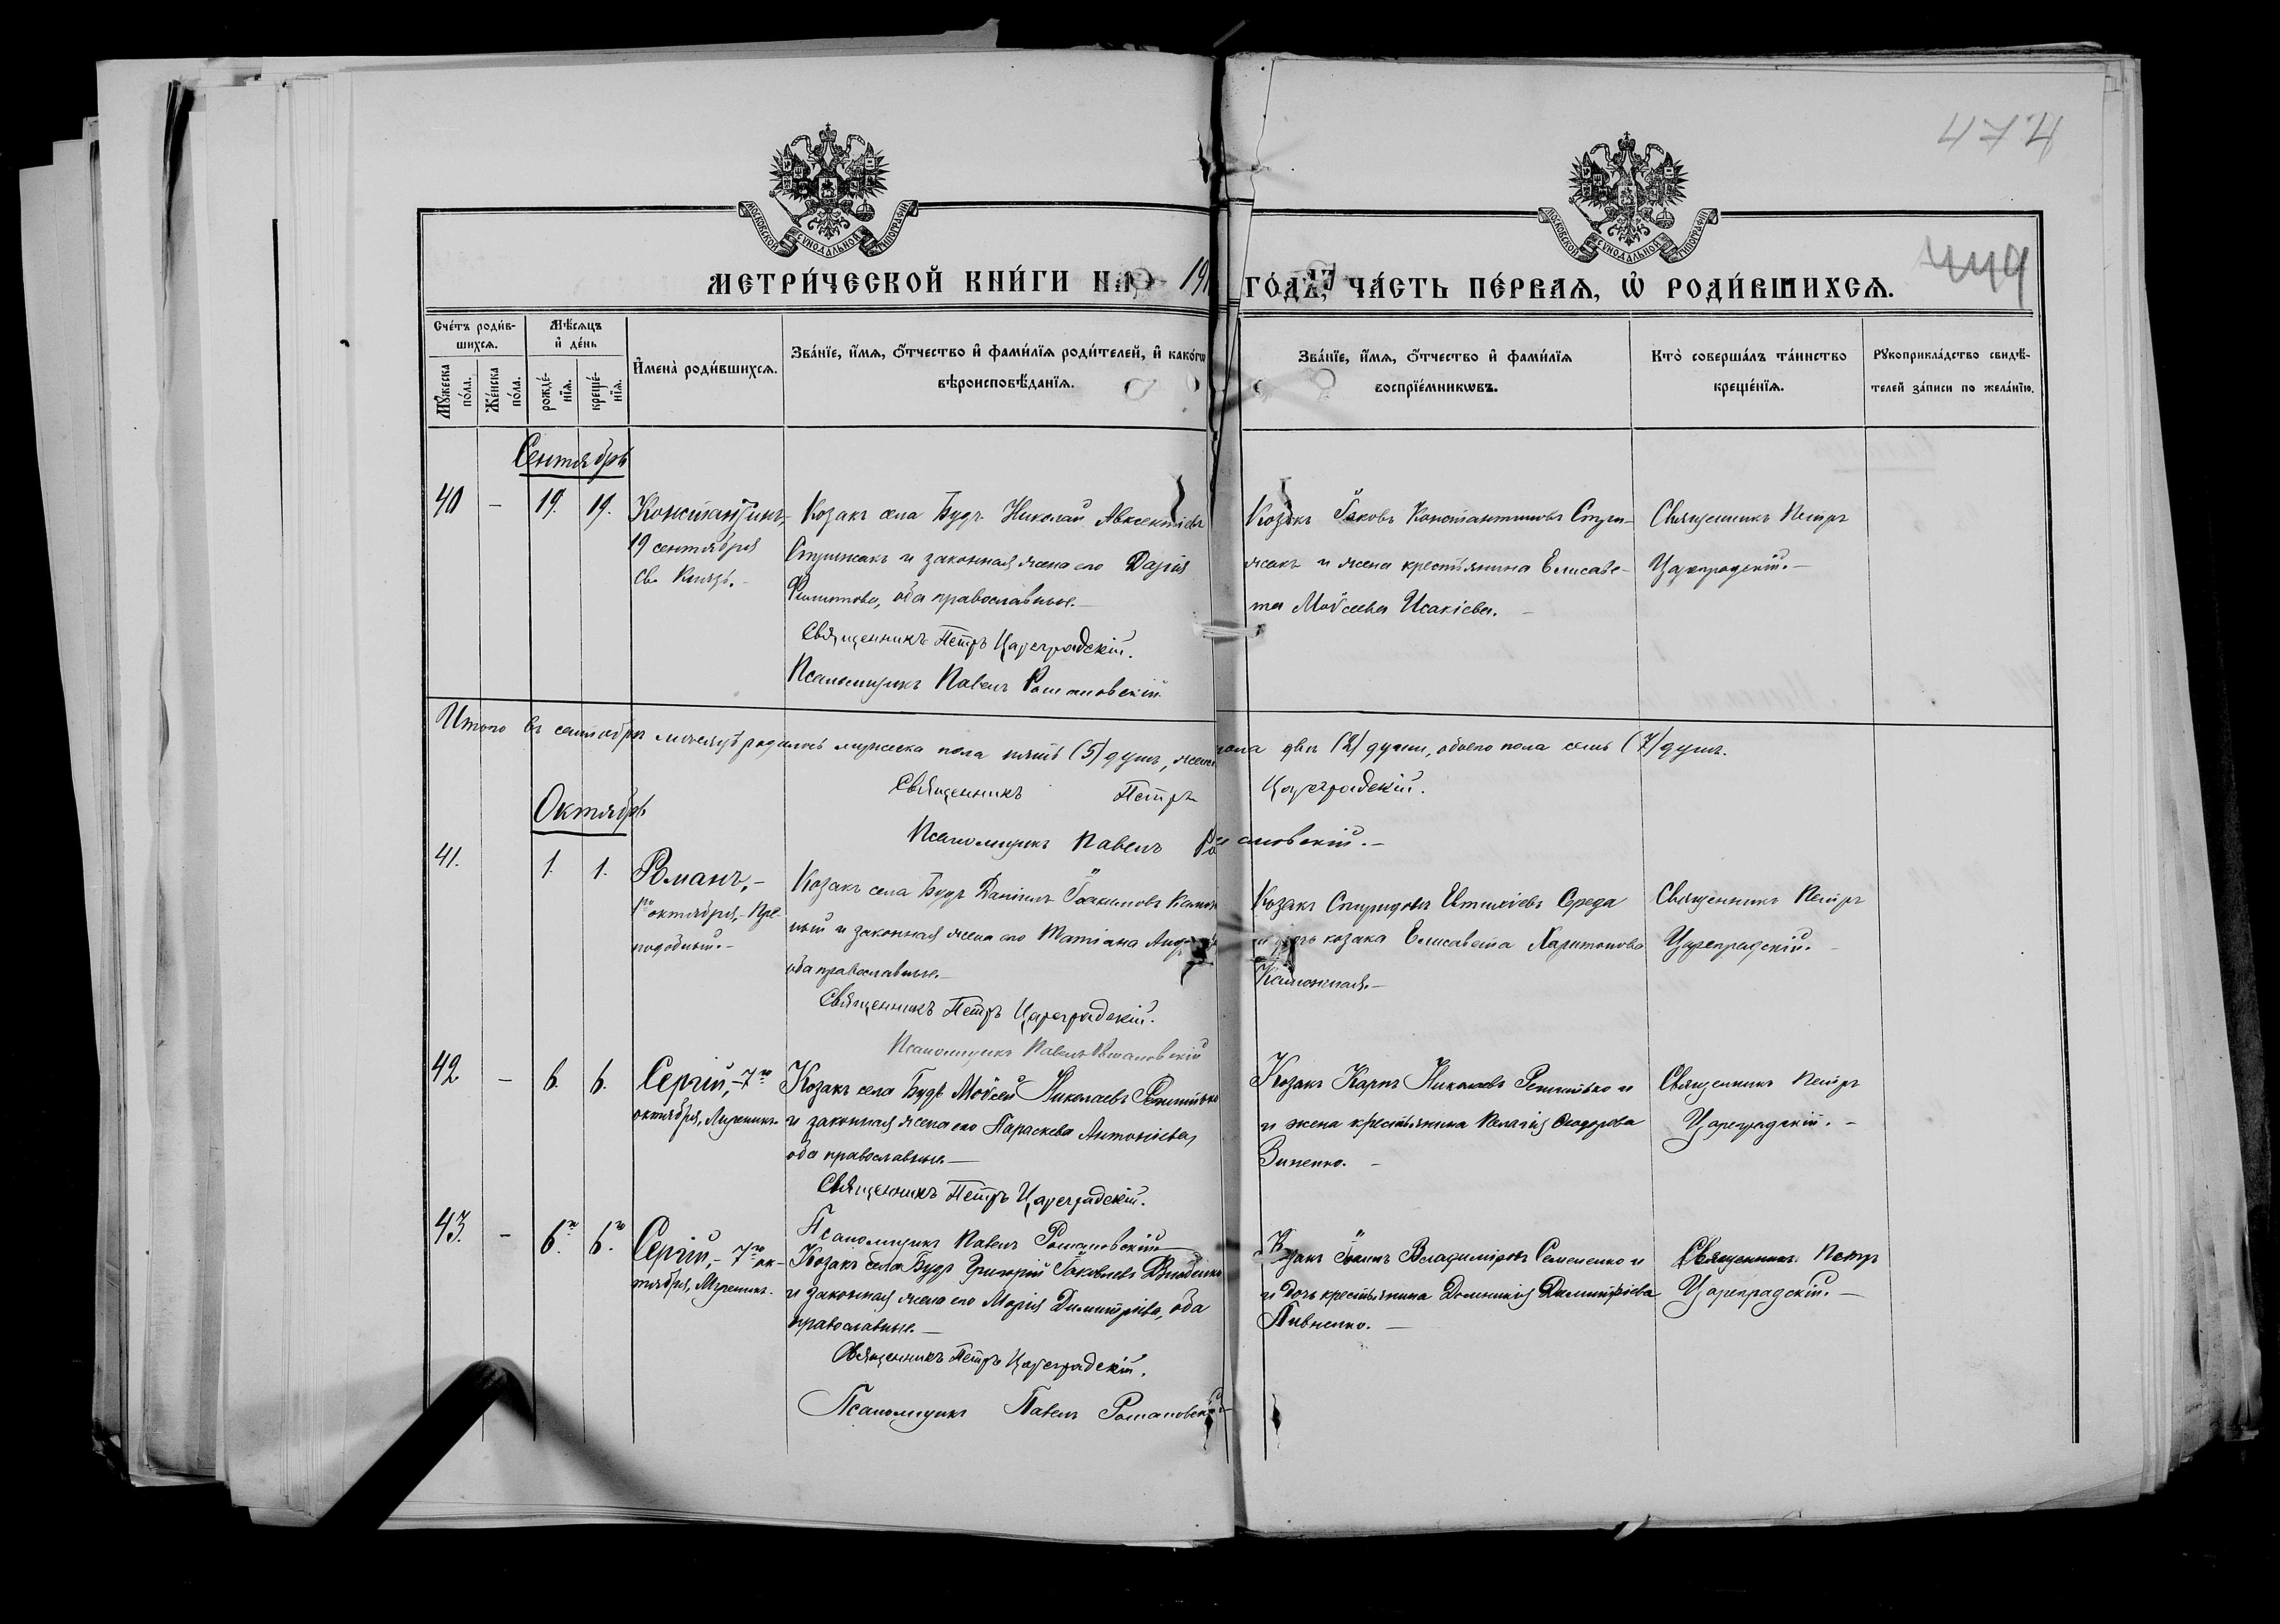 474
449
МОСКОВСКОЙ СѴНОДАЛЬНОЙ ТИПОГРАФІИ
МОСКОВСКОЙ СѴНОДАЛЬНОЙ ТИПОГРАФІИ
МЕТРИ́ЧЕСКОЙ КНИ́ГИ НА 1917 ГО́ДЪ, ЧА́СТЬ ПЕ́РВАѦ, Ѡ҆ РОДИ́ВШИХСѦ.
Сче́тъ роди́в-
шихсѧ.
Мꙋ́жеска по́ла.
Же́нска по́ла.
Мѣ́сѧцъ
и҆ де́нь
рожде́-
нїѧ.
креще́-
нїѧ.
И҆мена̀ роди́вшихсѧ.
Зва́нїе, и҆́мѧ, ѻ҆́тчество и҆ фами́лїѧ роди́телей, и҆ како́гѡ
вѣроисповѣ́данїѧ.
Зва́нїе, и҆́мѧ, ѻ҆́тчество и҆ фами́лїѧ
воспрїе́мникѡвъ.
Кто̀ соверша́лъ та́инство
креще́нїѧ.
Рꙋкоприкла́дство свидѣ́-
телей за́писи по жела́нїю.
Сентябрь
40 – 19. 19.
Константинъ,
19 сентября
Св. Князь.–
Козакъ села Будъ Николай Авксентіевъ
Стрижакъ и законная жена его Дарія
Филиппова, оба православные.–
Священникъ Петръ Цареградскій.
Псаломщикъ Павелъ Романовскій
Козакъ Іаковъ Константиновъ Стри-
жакъ и жена крестьянина Елисаве-
та Моѵсеева Исакіева.–
Священникъ Петръ
Цареградскій.–
Итого въ сентябрѣ мѣсяцѣ родилось мужеска пола пять (5) душъ, женска пола двѣ (2) души, обоего пола семь (7) душъ.
Священникъ Петръ Цареградскій.
Псаломщикъ Павелъ Романовскій.–
Октябрь
41. 1. 1.
Романъ,–
1го октября,– Пре-
подобный.–
Козакъ села Будъ Даніилъ Іоакимовъ
ный и законная жена его Татіана
оба православные.–
Священникъ Петръ Цареградскій.
Псаломщикъ Павелъ Романовскій
Козакъ Спиридонъ Евтихіевъ Середа
и дочь козака Елисавета Харитонова
Священникъ Петръ
Цареградскій.–
42 – 6. 6.
Сергій,– 7го
октября, Мученикъ.
Козакъ села Будъ Моѵсей Николаевъ Репитько
и законная жена его Параскева Антоніева,
оба православные.–
Священникъ Петръ Цареградскій.
Псаломщикъ Павелъ Романовскій
Козакъ Карпъ Николаевъ Репитько и
и жена крестьянина Пелагія Ѳеодорова
Зиненко.–
Священникъ Петръ
Цареградскій.–
43. – 6го. 6го.
Сергій,– 7го ок-
тября, Мученикъ.
Козакъ села Будъ Григорій Іаковлевъ
и законная жена его Марія Димитріева, оба
православные.–
Священникъ Петръ Цареградскій.
Псаломщикъ Павелъ Романовскій
Козакъ Іоаннъ Владиміровъ Семененко и
и дочь крестьянина Домникія Димитріева
Пивненко.–
Священникъ Петръ
Цареградскій.–